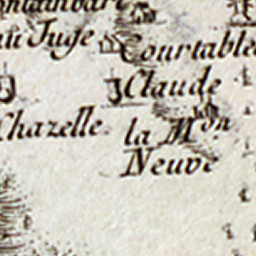 au Juge
Courtable
Claude
Chazelle
la M.on
Neuve